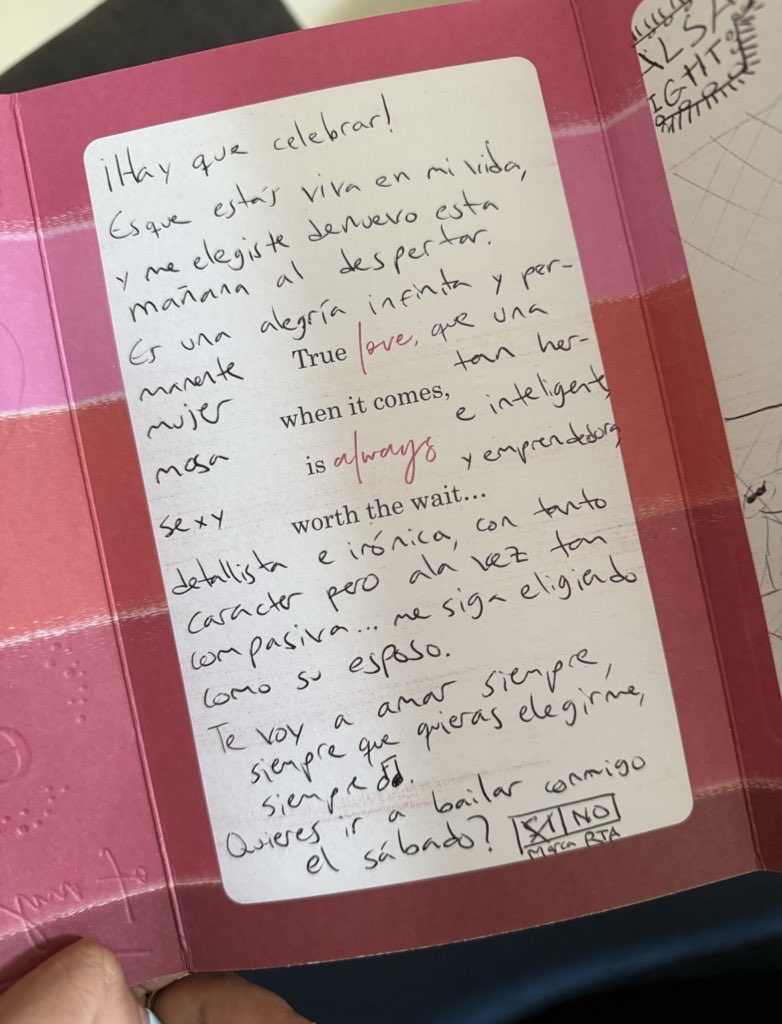 ¡Hay que celebrar!
Es que estás viva en mi vida,
y me elegiste denuevo esta
mañana al despertar.
Es una alegría infinita y per-
manente True love, que una
mujer when it comes, tan her-
mosa is always e inteligente,
sexy worth the wait... y emprendedora,
detallista e irónica, con tanto
caracter pero ala vez tan
compasiva... me siga eligiendo
como su esposo.
Te voy a amar siempre,
siempre que quieras elegirme,
siempre
Quieres ir a bailar conmigo
el sábado? SI NO
Marca RTA
ALSA
IGHT